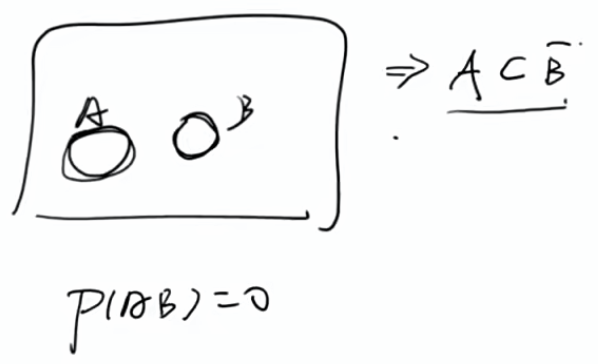 A
B
⇒ A ⊂ B̅
P(AB)=0